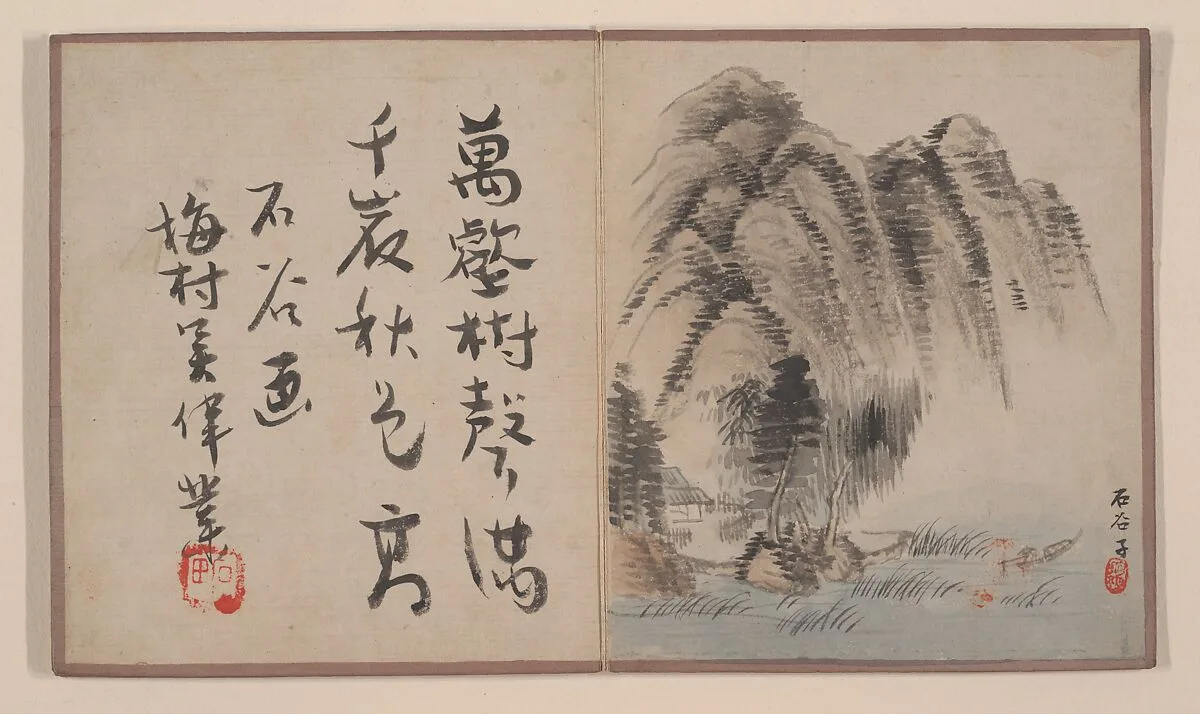 萬壑樹聲滿
千巖秋色高
石谷画
梅村吴偉業
石谷子